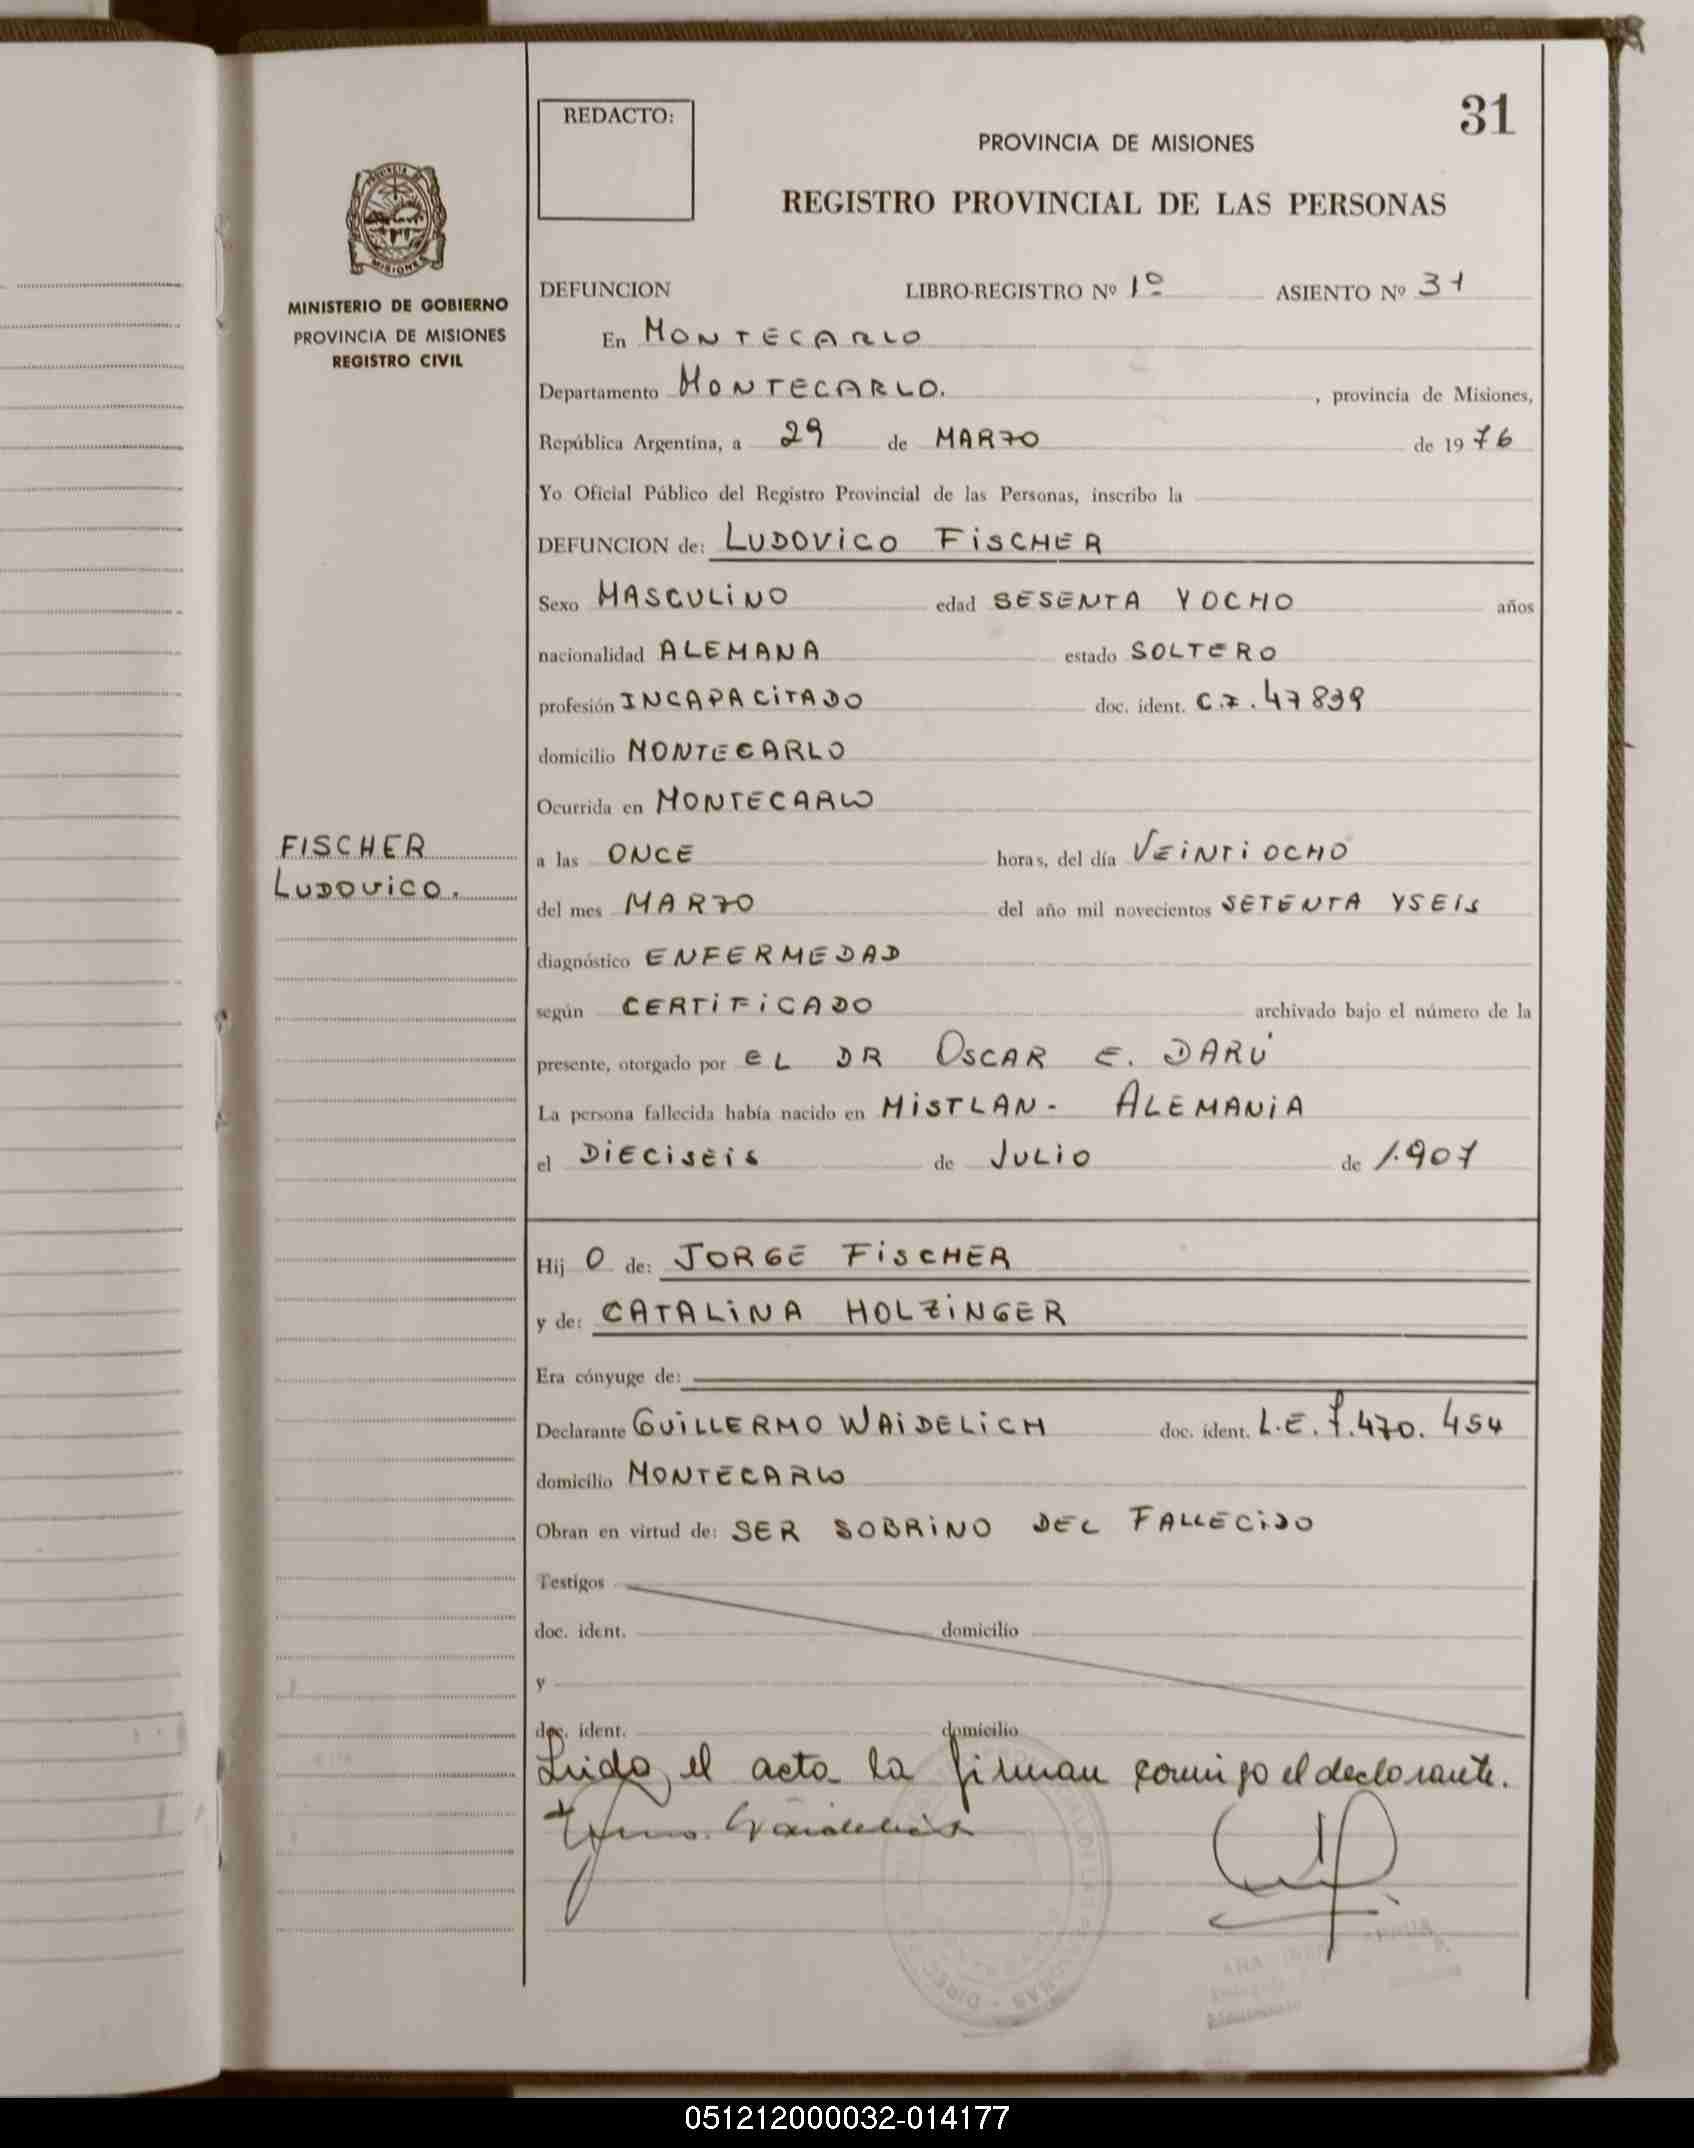 31
REDACTO:
PROVINCIA DE MISIONES
REGISTRO PROVINCIAL DE LAS PERSONAS
MISIONES
MINISTERIO DE GOBIERNO
PROVINCIA DE MISIONES
REGISTRO CIVIL
DEFUNCION LIBRO-REGISTRO Nº 1º ASIENTO Nº 31
En MONTECARLO
Departamento MONTECARLO. , provincia de Misiones,
República Argentina, a 29 de MARZO de 1976
Yo Oficial Público del Registro Provincial de las Personas, inscribo la
DEFUNCION de: LUDOVICO FISCHER
Sexo MASCULINO edad SESENTA Y OCHO años
nacionalidad ALEMANA estado SOLTERO
profesión INCAPACITADO doc. ident. C.I. 47839
domicilio MONTECARLO
Ocurrida en MONTECARLO
FISCHER
LUDOVICO.
a las ONCE horas, del día VEINTIOCHO
del mes MARZO del año mil novecientos SETENTA Y SEIS
diagnóstico ENFERMEDAD
según CERTIFICADO archivado bajo el número de la
presente, otorgado por EL DR OSCAR E. DARÚ
La persona fallecida había nacido en MISTLAN- ALEMANIA
el DIECISEIS de JULIO de 1.907
Hij O de: JORGE FISCHER
y de: CATALINA HOLZINGER
Era cónyuge de:
Declarante GUILLERMO WAIDELICH doc. ident. L.E. 7.470.454
domicilio MONTECARLO
Obran en virtud de: SER SOBRINO DEL FALLECIDO
Testigos
doc. ident. domicilio
y
doc. ident. domicilio
Leida el acta la firman comigo el declarante.
051212000032-014177